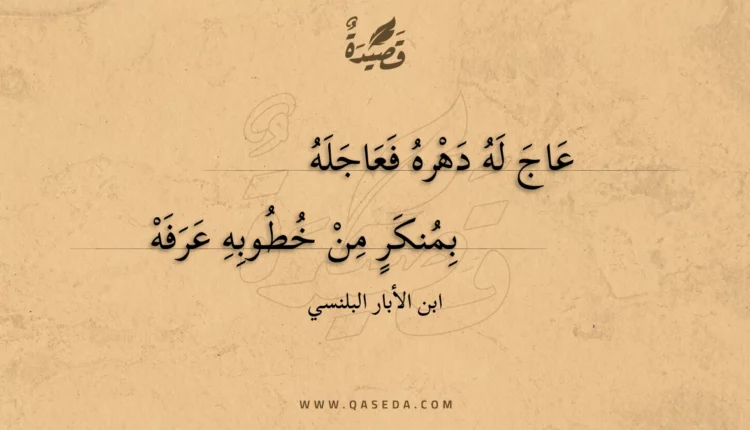 قَصِيدَةٌ
عَاجَ لَهُ دَهْرهُ فَعَاجَلَهُ
بِمُنكَرٍ مِنْ خُطُوبِهِ عَرَفَهْ
ابن الأبار البلنسي
WWW.QASEDA.COM